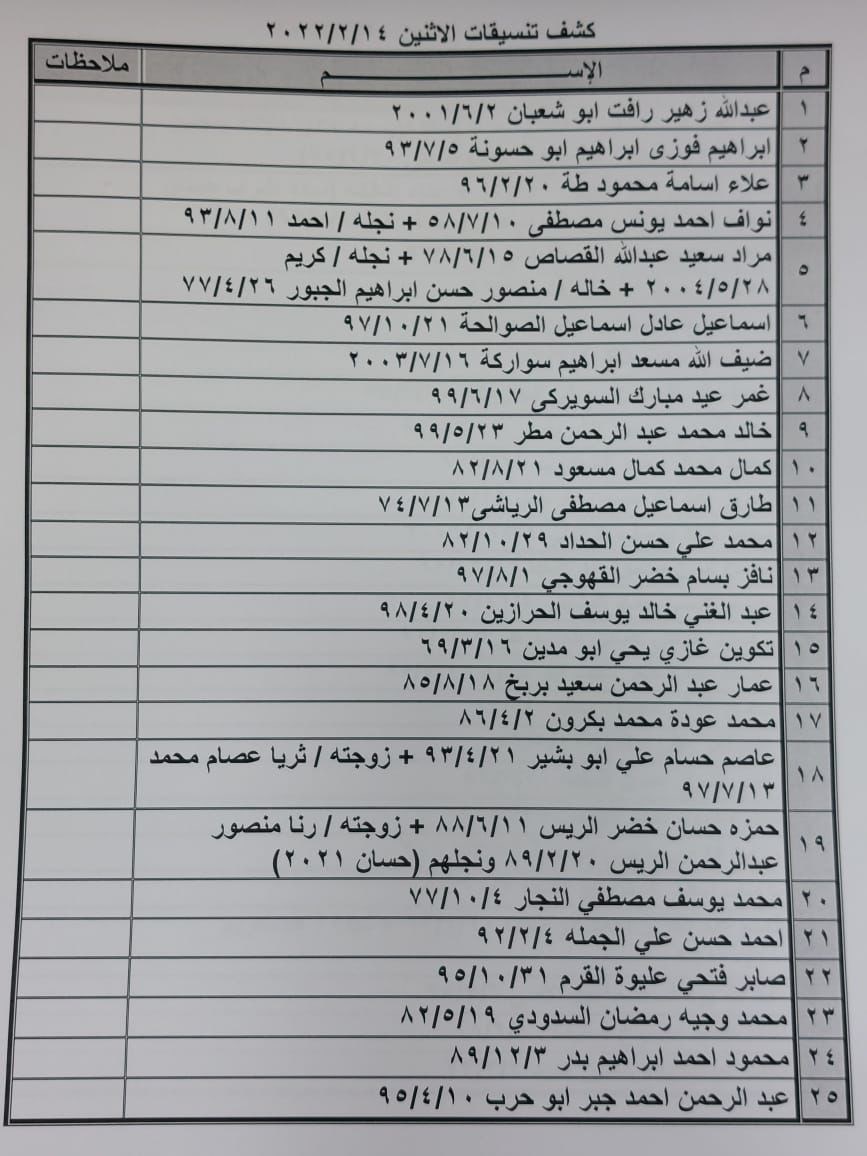 كشف تنسيقات الاثنين ٢٠٢٢/٢/١٤
م الإســـــــم ملاحظات
١ عبدالله زهير رافت ابو شعبان ٢٠٠١/٦/٢
٢ ابراهيم فوزى ابراهيم ابو حسونة ٩٣/٧/٥
٣ علاء اسامة محمود طة ٩٦/٢/٢٠
٤ نواف احمد يونس مصطفى ٥٨/٧/١٠ + نجله / احمد ٩٣/٨/١١
٥ مراد سعيد عبدالله القصاص ٧٨/٦/١٥ + نجله / كريم
٢٠٠٤/٥/٢٨ + خاله / منصور حسن ابراهيم الجبور ٧٧/٤/٢٦
٦ اسماعيل عادل اسماعيل الصوالحة ٩٧/١٠/٢١
٧ ضيف الله مسعد ابراهيم سواركة ٢٠٠٣/٧/١٦
٨ غمر عيد مبارك السويركى ٩٩/٦/١٧
٩ خالد محمد عبد الرحمن مطر ٩٩/٥/٢٣
١٠ كمال محمد كمال مسعود ٨٢/٨/٢١
١١ طارق اسماعيل مصطفى الرياشى٧٤/٧/١٣
١٢ محمد علي حسن الحداد ٨٢/١٠/٢٩
١٣ نافز بسام خضر القهوجي ٩٧/٨/١
١٤ عبد الغني خالد يوسف الحرازين ٩٨/٤/٢٠
١٥ تكوين غازي يحي ابو مدين ٦٩/٣/١٦
١٦ عمار عبد الرحمن سعيد بربخ ٨٥/٨/١٨
١٧ محمد عودة محمد بكرون ٨٦/٤/٢
١٨ عاصم حسام علي ابو بشير ٩٣/٤/٢١ + زوجته / ثريا عصام محمد
٩٧/٧/١٣
١٩ حمزه حسان خضر الريس ٨٨/٦/١١ + زوجته / رنا منصور
عبدالرحمن الريس ٨٩/٢/٢٠ ونجلهم (حسان ٢٠٢١)
٢٠ محمد يوسف مصطفي النجار ٧٧/١٠/٤
٢١ احمد حسن علي الجمله ٩٢/٢/٤
٢٢ صابر فتحي عليوة القرم ٩٥/١٠/٣١
٢٣ محمد وجيه رمضان السدودي ٨٢/٥/١٩
٢٤ محمود احمد ابراهيم بدر ٨٩/١٢/٣
٢٥ عبد الرحمن احمد جبر ابو حرب ٩٥/٤/١٠